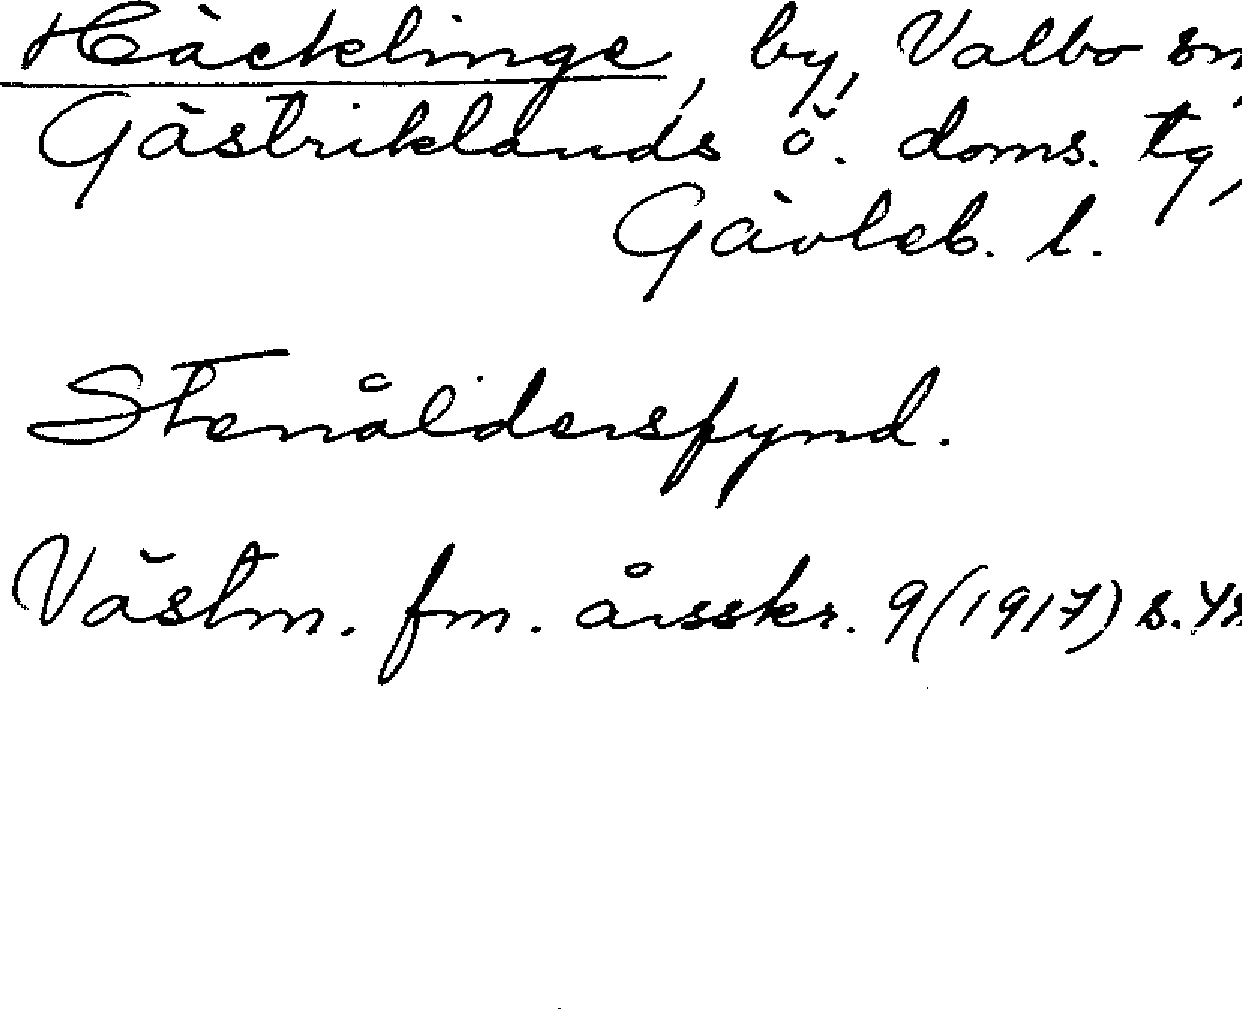 Häcklinge, by, Valbo sn,
Gästriklands ö. doms. tg,
Gävleb. l.
Stenåldersfynd.
Västm. fm. årsskr. 9 (1917) s.